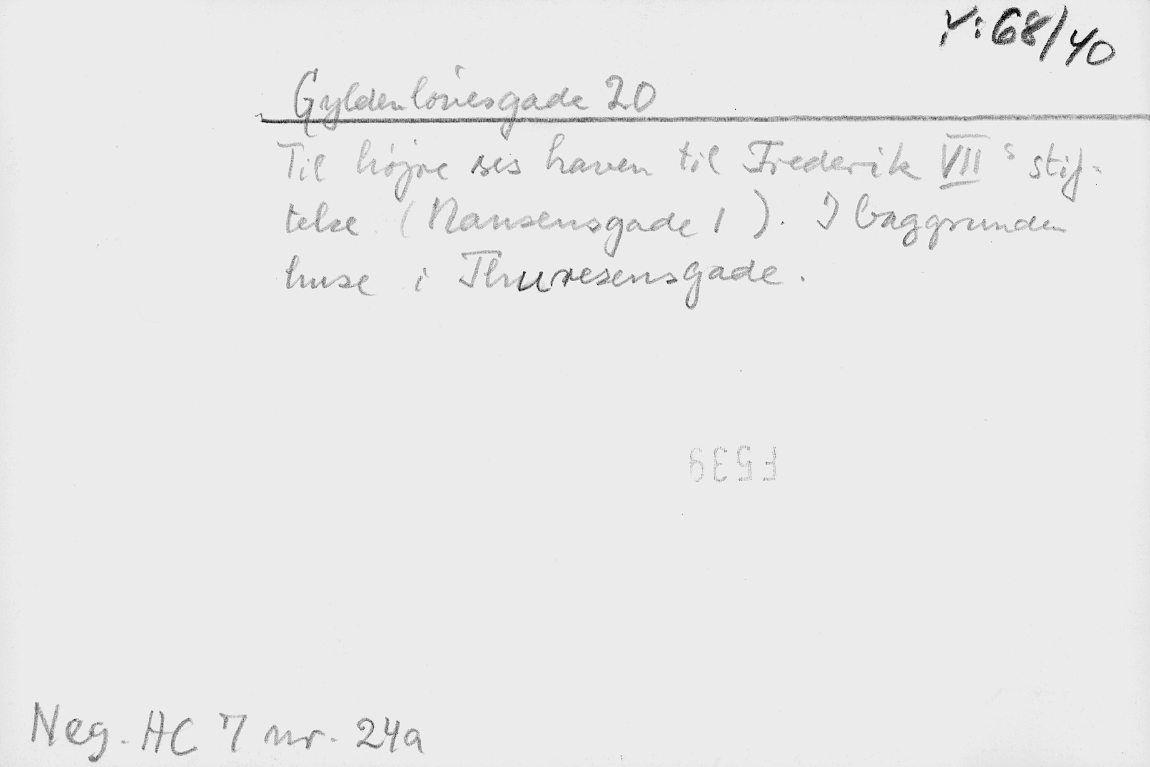 Y:68/40
Gyldenløvesgade 20
Til højre ses haven til Frederik VII s stif-
telse (Nansensgade 1). I baggrunden
huse i Thuresensgade.
F539
Neg. HC 7 nr. 24a